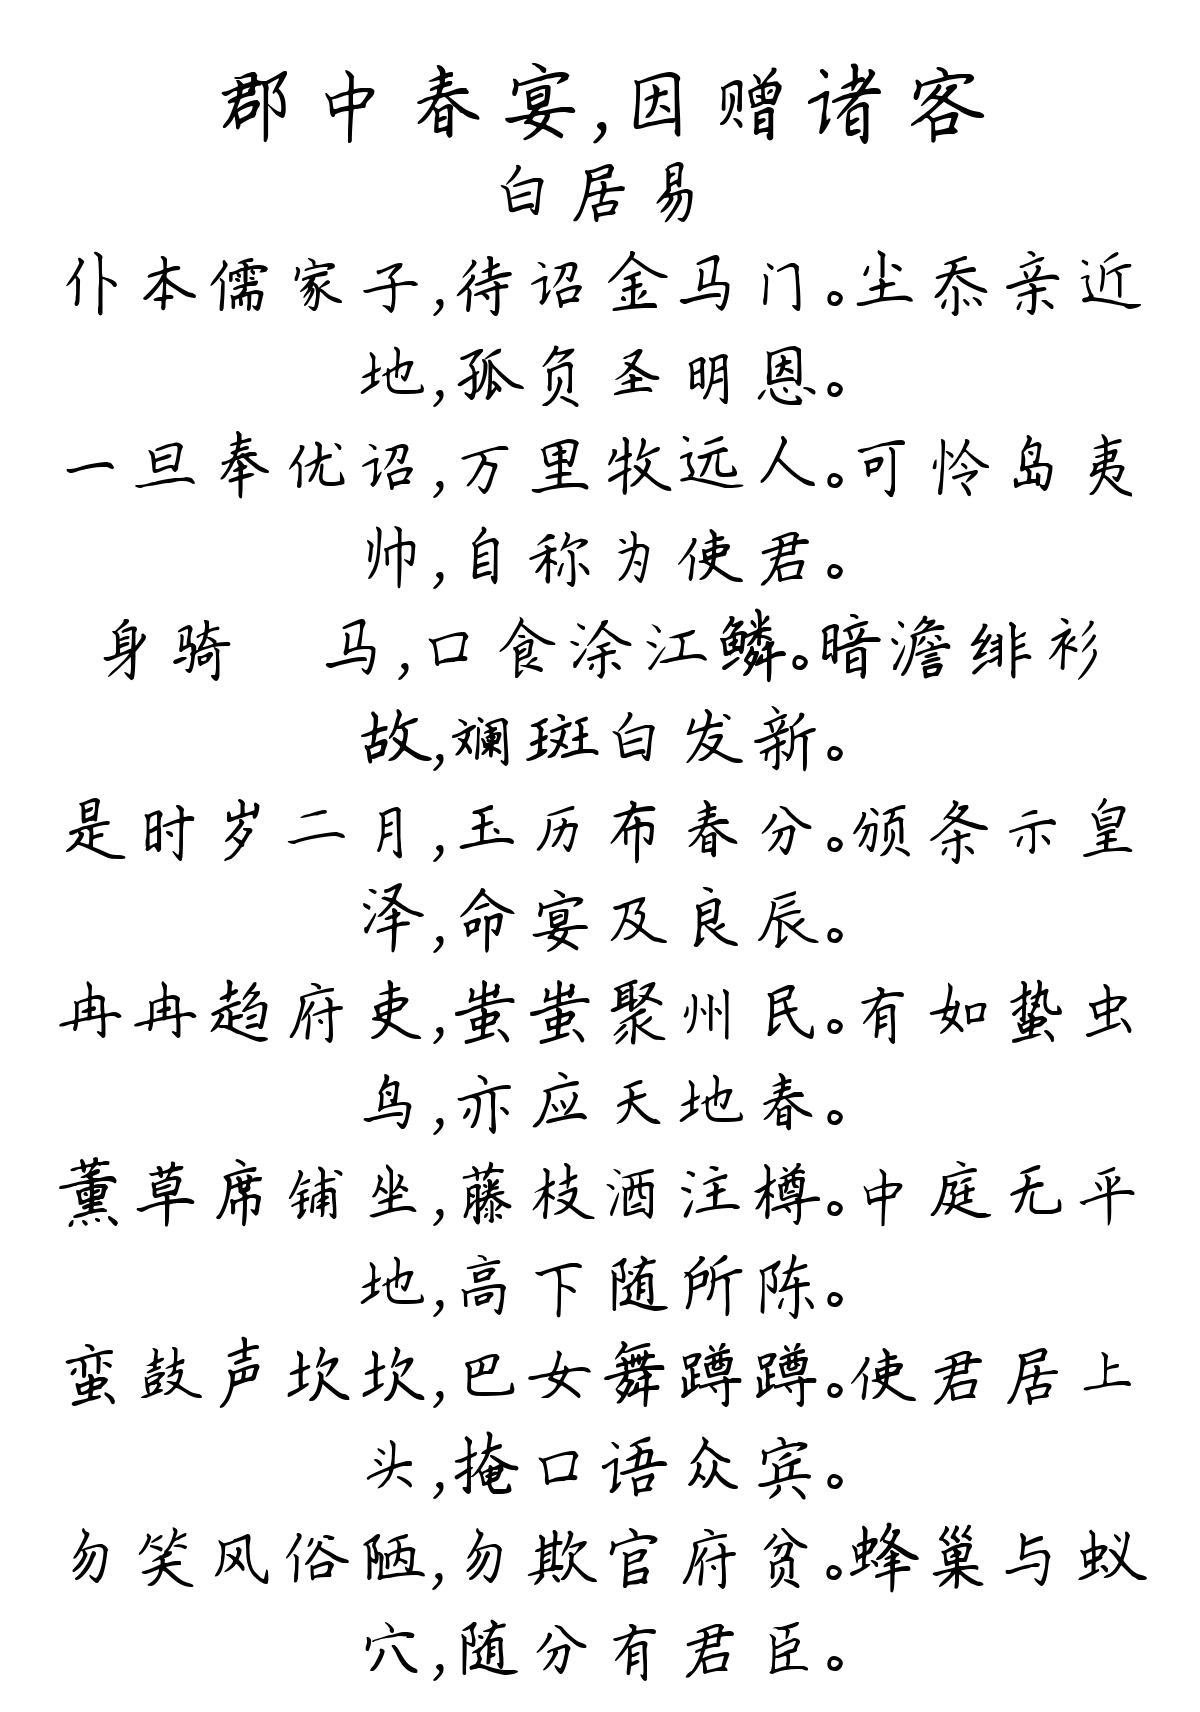 郡中春宴,因赠诸客
白居易
仆本儒家子,待诏金马门。尘忝亲近
地,孤负圣明恩。
一旦奉优诏,万里牧远人。可怜岛夷
帅,自称为使君。
身骑 马,口食涂江鳞。暗澹绯衫
故,斓斑白发新。
是时岁二月,玉历布春分。颁条示皇
泽,命宴及良辰。
冉冉趋府吏,蚩蚩聚州民。有如蛰虫
鸟,亦应天地春。
薰草席铺坐,藤枝酒注樽。中庭无平
地,高下随所陈。
蛮鼓声坎坎,巴女舞蹲蹲。使君居上
头,掩口语众宾。
勿笑风俗陋,勿欺官府贫。蜂巢与蚁
穴,随分有君臣。